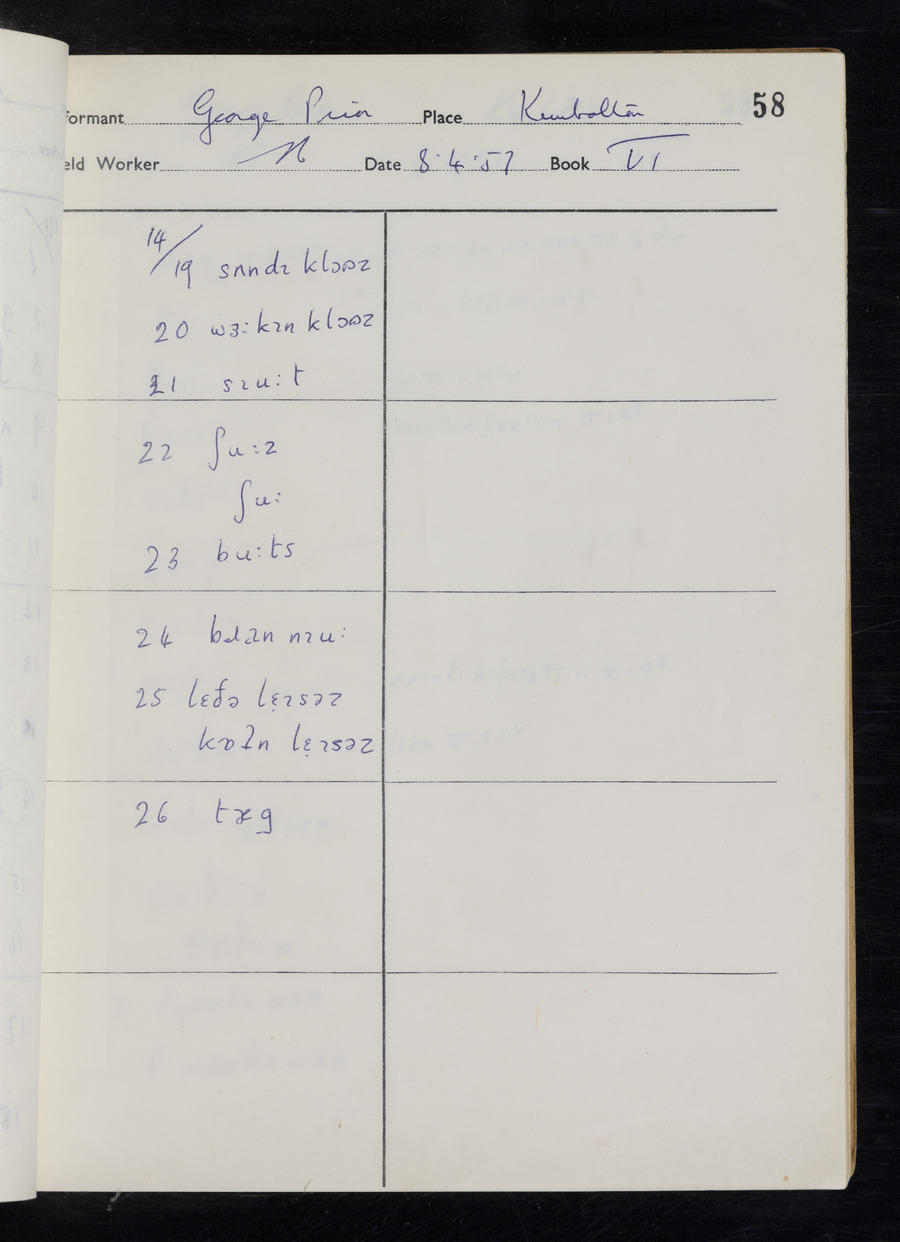 formant George Prior Place Kimbolton 58
eld Worker Date 8.4.57 Book VI
14/19 sʌndɪ klɔəz
20 wɜ:kɪn klɔəz
21 sɪu:t
22 ʃu:z
ʃu:
23 bu:ts
24 bɹan nɪu:
25 lɛðə lɛ̣ɪsəz
kɒʔn lɛ̣ɪsəz
26 tæg